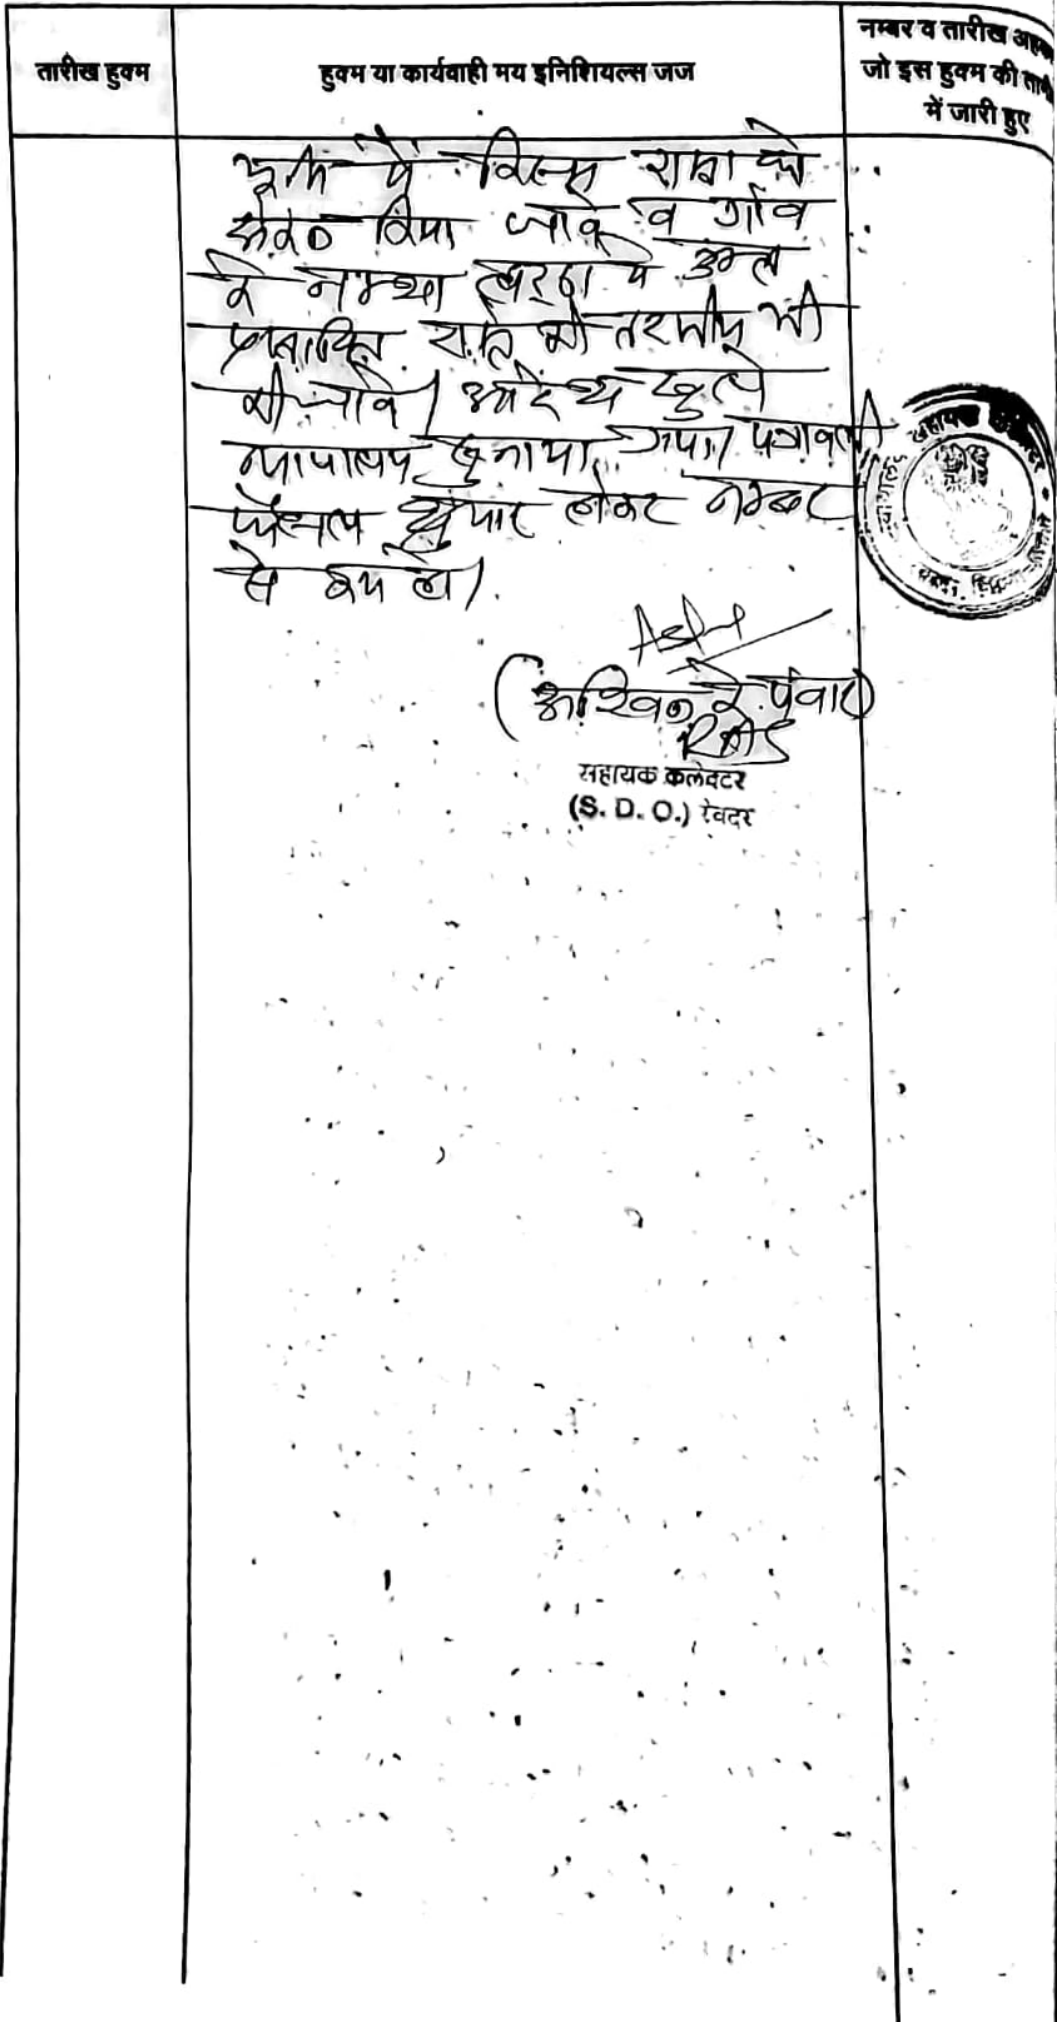 तारीख हुक्म
हुक्म या कार्यवाही मय इनिशियल्स जज
नम्बर व तारीख
जो इस हुक्म की
में जारी हुए
भूमि में किस्म रास्ता
दर्ज किया जावे व गाँव
के नक्शा में उक्त
प्रस्तावित रास्ते की तरमीम भी
की जावे। आदेश खुले
न्यायालय सुनाया गया। पत्रावली
फैसल शुमार होकर नम्बर
से कम हो।
(अश्विन के. पंवार)
RAS
सहायक कलेक्टर
(S. D. O.) रेवदर
सहायक